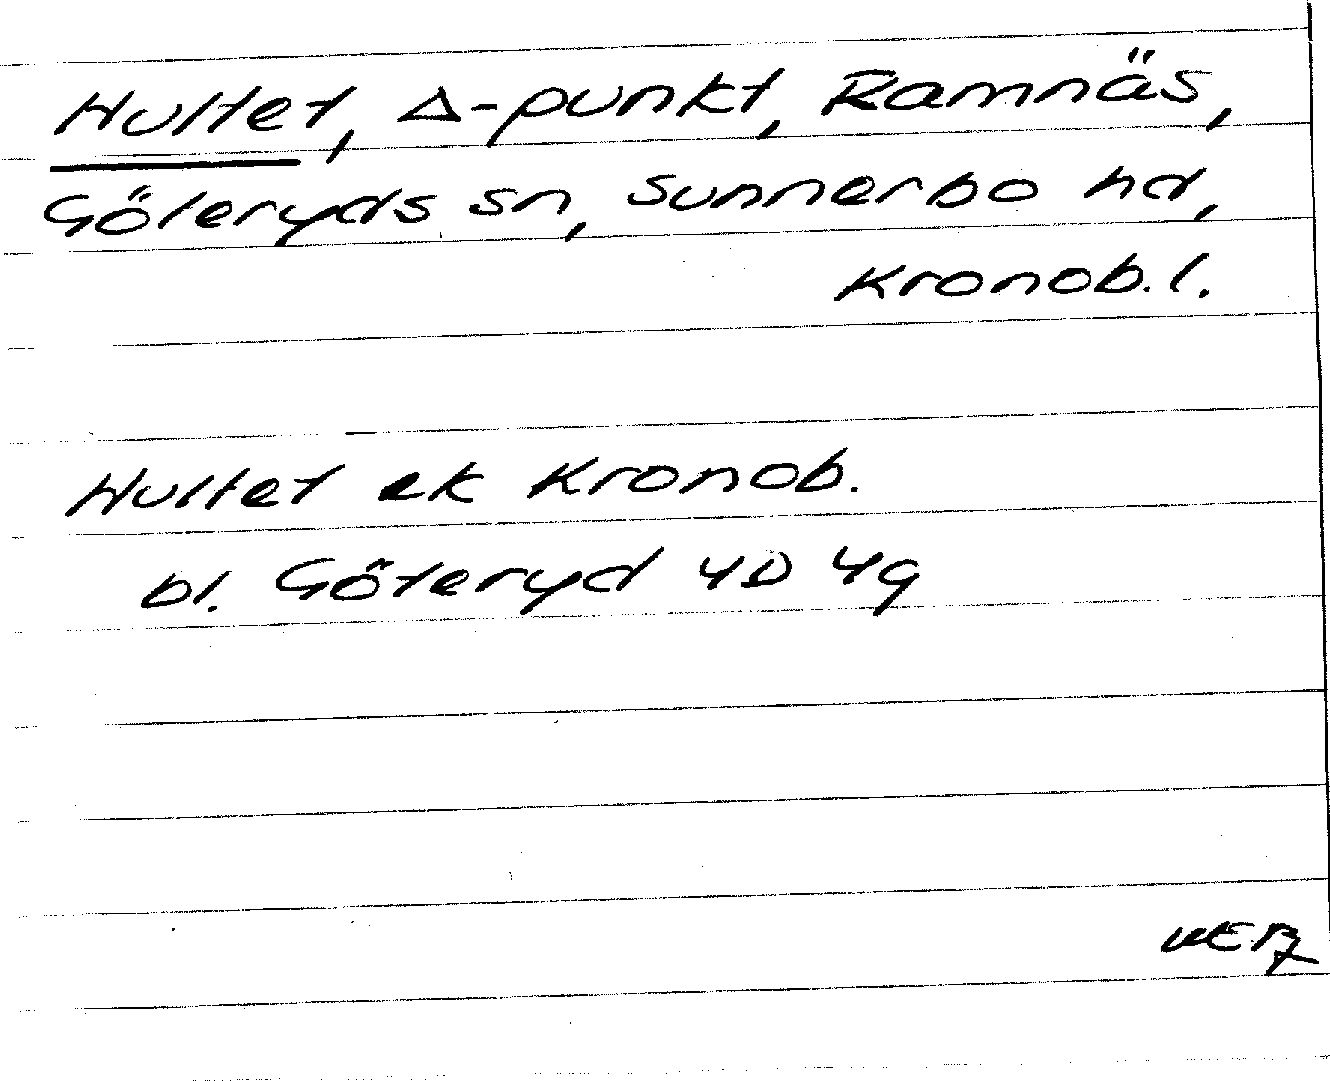 Hultet, Δ-punkt, Ramnäs,
Göteryds sn, Sunnerbo hd,
Kronob. l.
Hultet ek Kronob.
bl. Göteryd 4D 4g